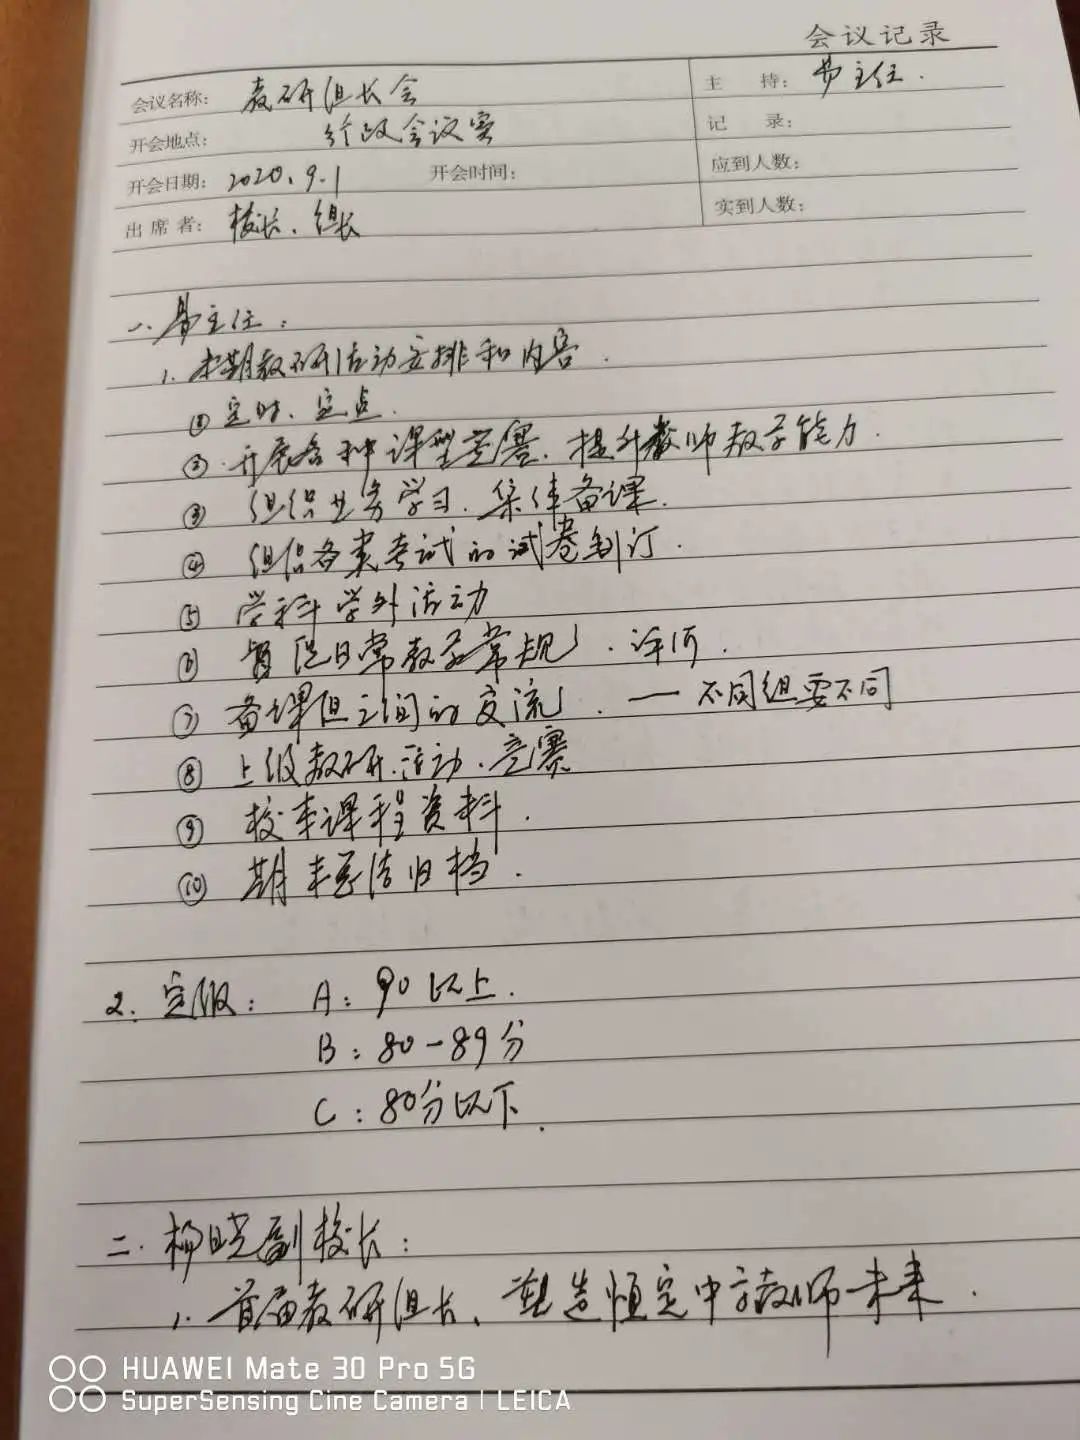 会议记录
会议名称: 教研组长会
主 持: 主任.
开会地点: 行政会议室
记 录:
开会日期: 2020.9.1 开会时间:
应到人数:
出席者: 校长、组长
实到人数:
一、主任:
1. 本期教研活动安排和内容.
① 定时、定点.
② 开展各种课型竞赛.提升教师教学能力.
③ 组织业务学习.集体备课.
④ 组织各类考试的试卷制订.
⑤ 学科学外活动
⑥ 日常教学常规.评价.
⑦ 备课组之间的交流. — 不同组要不同
⑧ 上级教研.活动.竞赛
⑨ 校本课程资料.
⑩ 期末总结归档.
2. 定级: A: 90以上.
B: 80-89分
C: 80分以下.
二. 杨晓副校长:
1. 首届教研组长、塑造恒定中教师未来.
HUAWEI Mate 30 Pro 5G
SuperSensing Cine Camera | LEICA